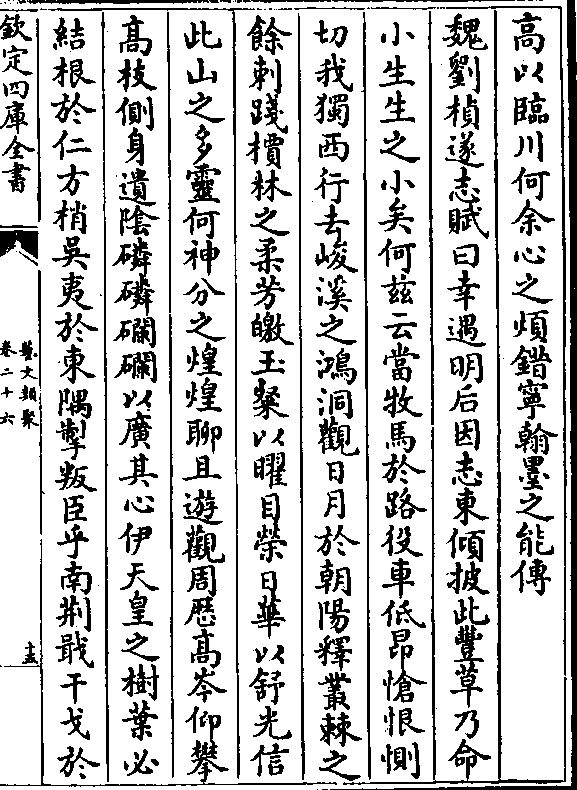 高以臨川何余心之煩錯寧翰墨之能傳
魏劉楨遂志賦曰幸遇明后因志東傾披此豐草乃命
小生生之小矣何兹云當牧馬於路役車低昂愴恨惻
切我獨西行去峻溪之鴻洞觀日月於朝陽釋叢棘之
餘刺踐檟林之柔芳皦玉粲以曜目榮日華以舒光信
此山之多靈何神分之煌煌聊且遊觀周歴高岑仰攀
高枝側身遺陰磷磷㶚㶚以廣其心伊天皇之樹葉必
結根於仁方梢吳夷於東隅掣叛臣乎南荆戢干戈於
欽定四庫全書
藝文類聚
卷二十六
十五